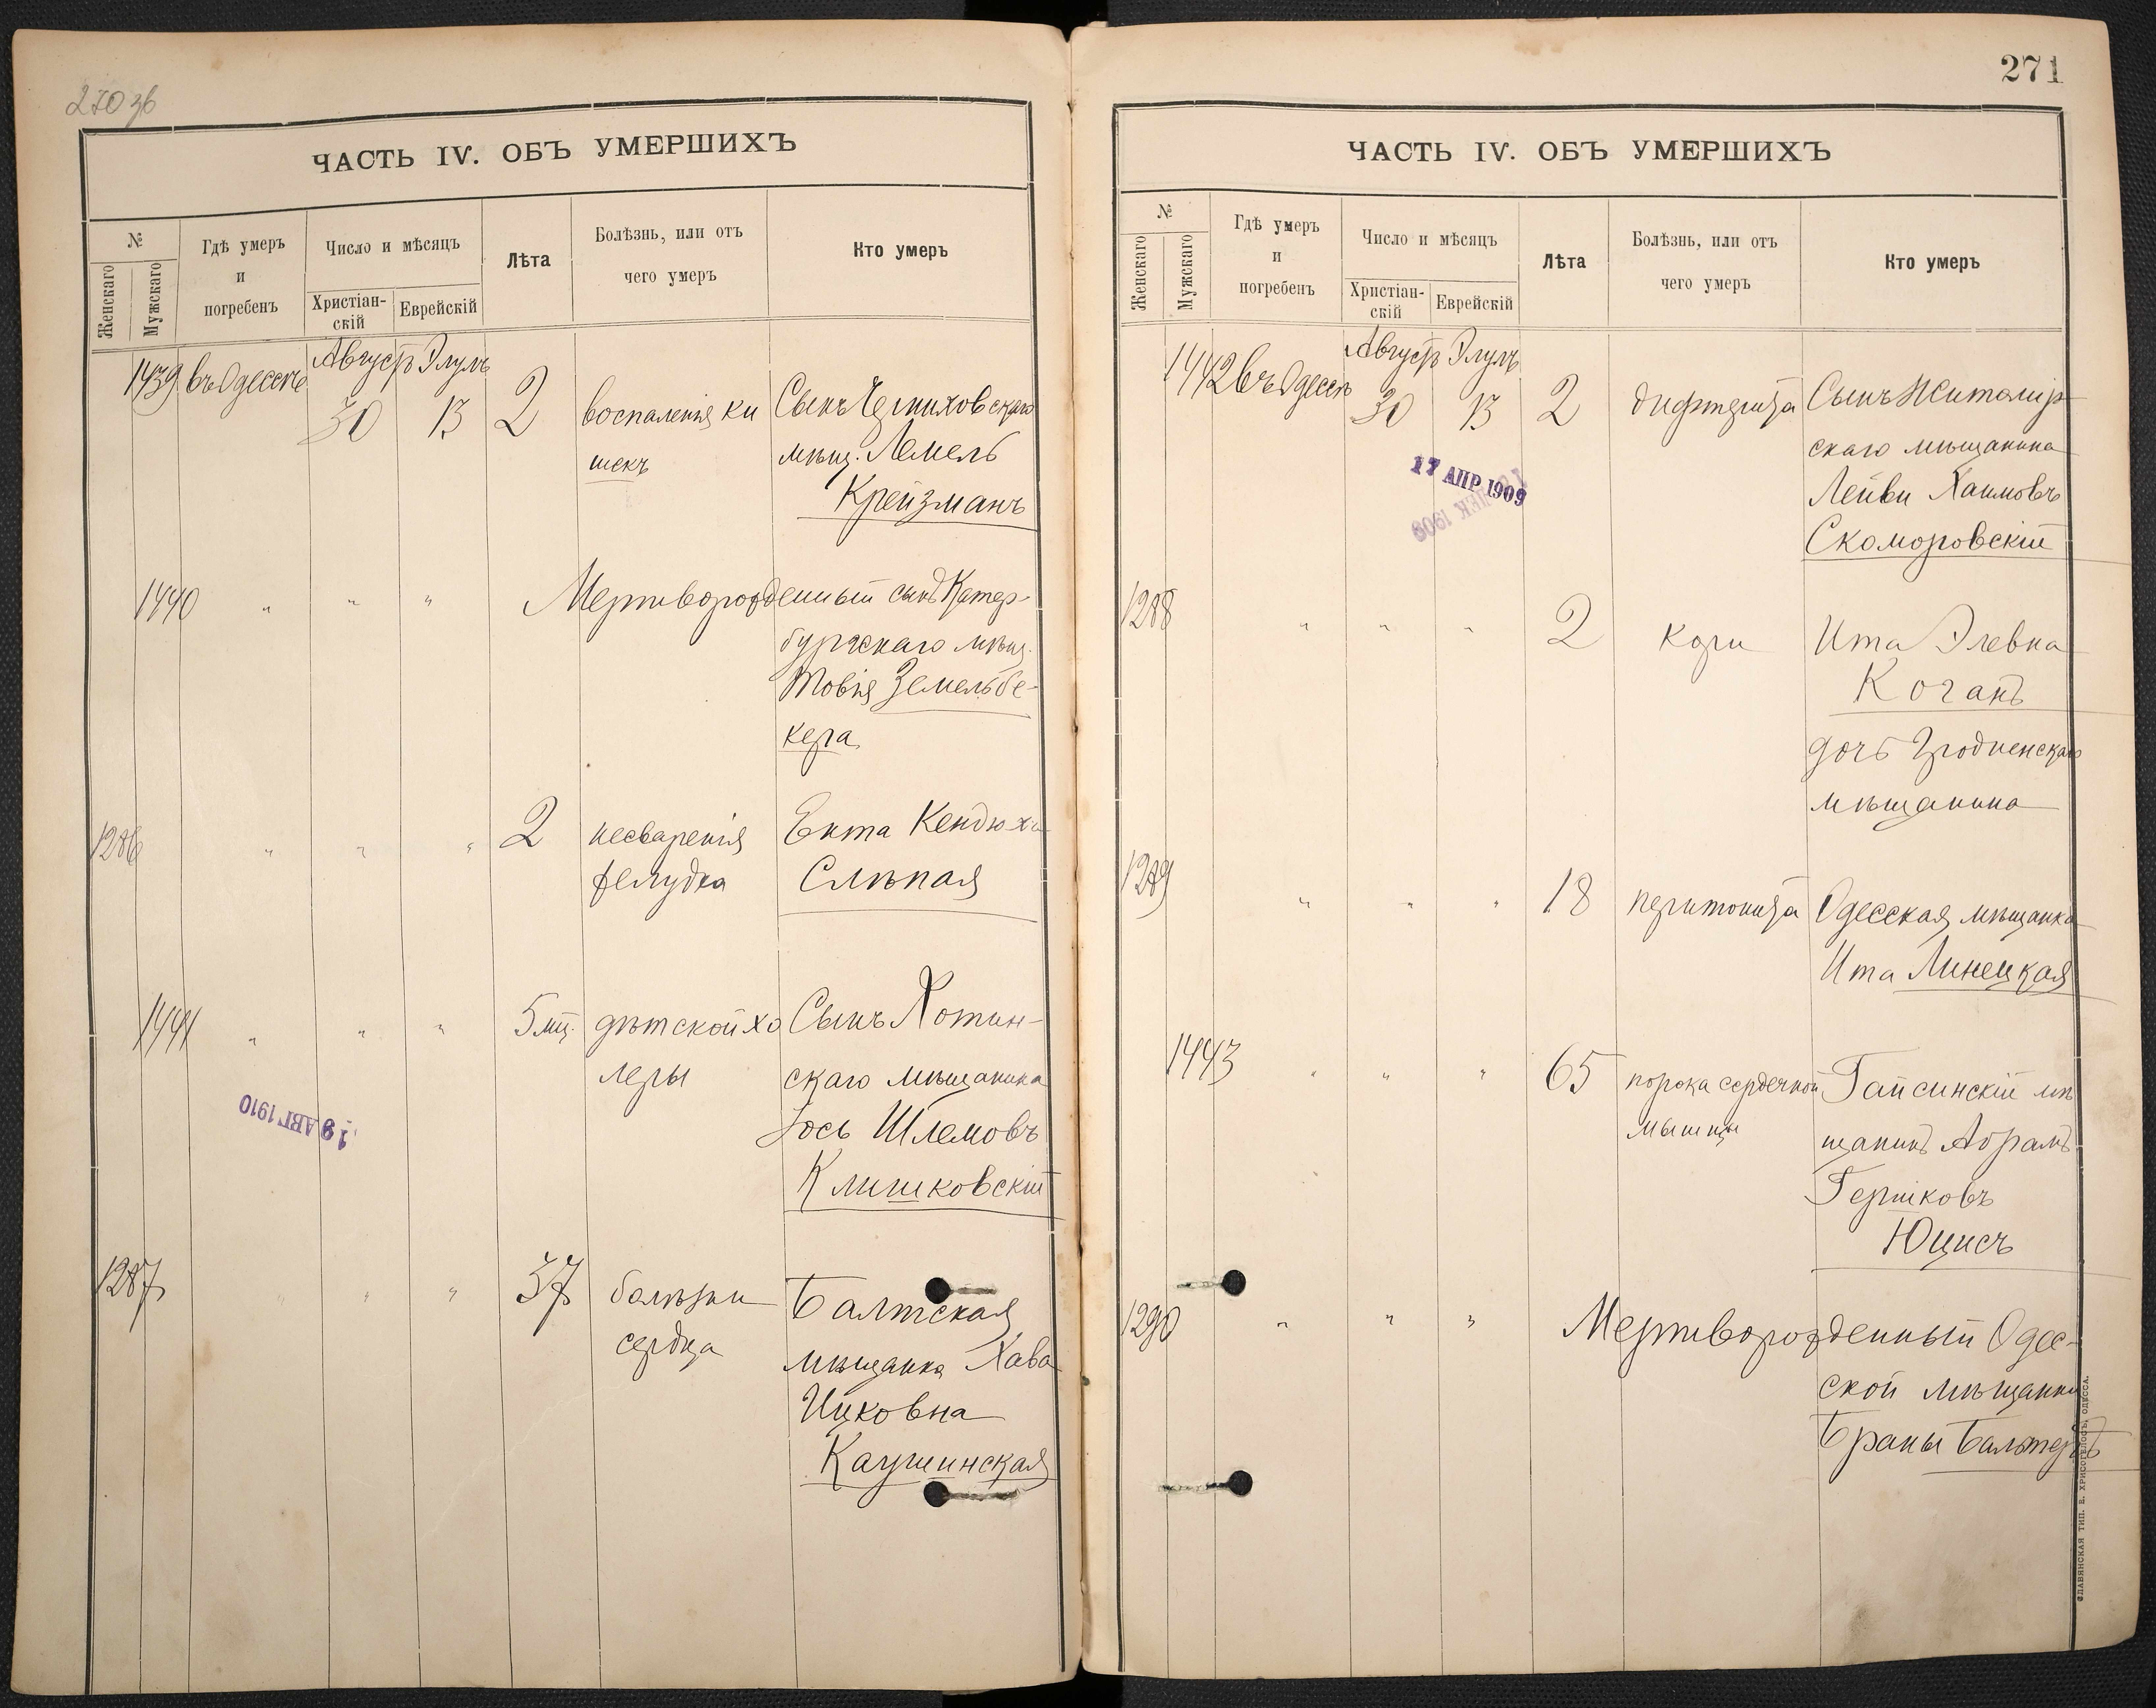 270 зв
ЧАСТЬ IV. ОБЪ УМЕРШИХЪ
№
Женскаго
Мужскаго
Гдѣ умеръ
и
погребенъ
Число и мѣсяцъ
Христіан-
скій
Еврейскій
Лѣта
Болѣзнь, или отъ
чего умеръ
Кто умеръ
Августъ Элулъ
1439 въ Одессѣ 30 13 2 воспаленія ки Сынъ
шекъ мѣщ. Лемель
Крейзманъ
1440 " " " Мертворожденный сынъ Катер-
бургскаго мѣщ.
Товія Земельбе-
кера
1286 " " " 2 несваренія Ента
желудка Слѣпая
1441 " " " 5 мц. дѣтской хо Сынъ Хотин-
леры скаго мѣщанина
Іось Шлемовъ
Клишковскій
19 АВГ 1910
1287 " " " 37 болѣзни Балтская
сердца мѣщанка Хава
Ицковна
Каушинская
271
ЧАСТЬ IV. ОБЪ УМЕРШИХЪ
№
Женскаго
Мужскаго
Гдѣ умеръ
и
погребенъ
Число и мѣсяцъ
Христіан-
скій
Еврейскій
Лѣта
Болѣзнь, или отъ
чего умеръ
Кто умеръ
Августъ Элулъ
1442 въ Одессѣ 30 13 2 дифтерита Сынъ Житомір
скаго мѣщанина
Лейви Хаимовъ
Скоморовскій
17 АПР 1909
1288 " " " 2 кори Ита Элевна
Коганъ
дочь Гродненскаго
мѣщанина
1289 " " " 18 перитонита Одесская мѣщанка
Ита Линецкая
1443 " " " 65 порока сердечной Гайсинскій мѣ
мышцы щанинъ Абрамъ
Гершковъ
Юцисъ
1290 " " " Мертворожденный Одес-
ской мѣщанки
Браны Бальтеръ
СЛАВЯНСКАЯ ТИП. Е. ХРИСОГЕЛОСЪ, ОДЕССА.